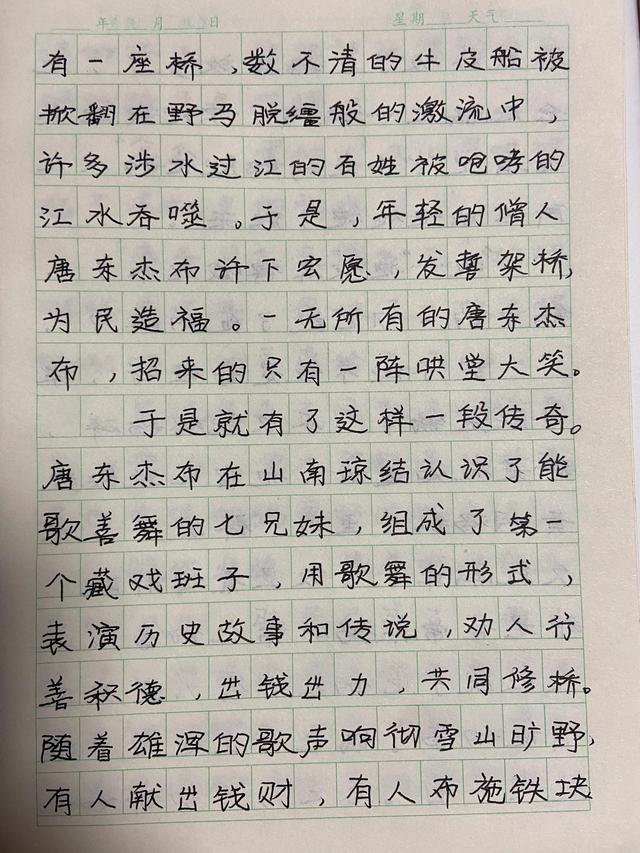 年 月 日 星期 天气
有一座桥，数不清的牛皮船被
掀翻在野马脱缰般的激流中，
许多涉水过江的百姓被咆哮的
江水吞噬。于是，年轻的僧人
唐东杰布许下宏愿，发誓架桥，
为民造福。一无所有的唐东杰
布，招来的只有一阵哄堂大笑。
于是就有了这样一段传奇。
唐东杰布在山南琼结认识了能
歌善舞的七兄妹，组成了第一
个藏戏班子，用歌舞的形式，
表演历史故事和传说，劝人行
善积德，出钱出力，共同修桥。
随着雄浑的歌声响彻雪山旷野，
有人献出钱财，有人布施铁块